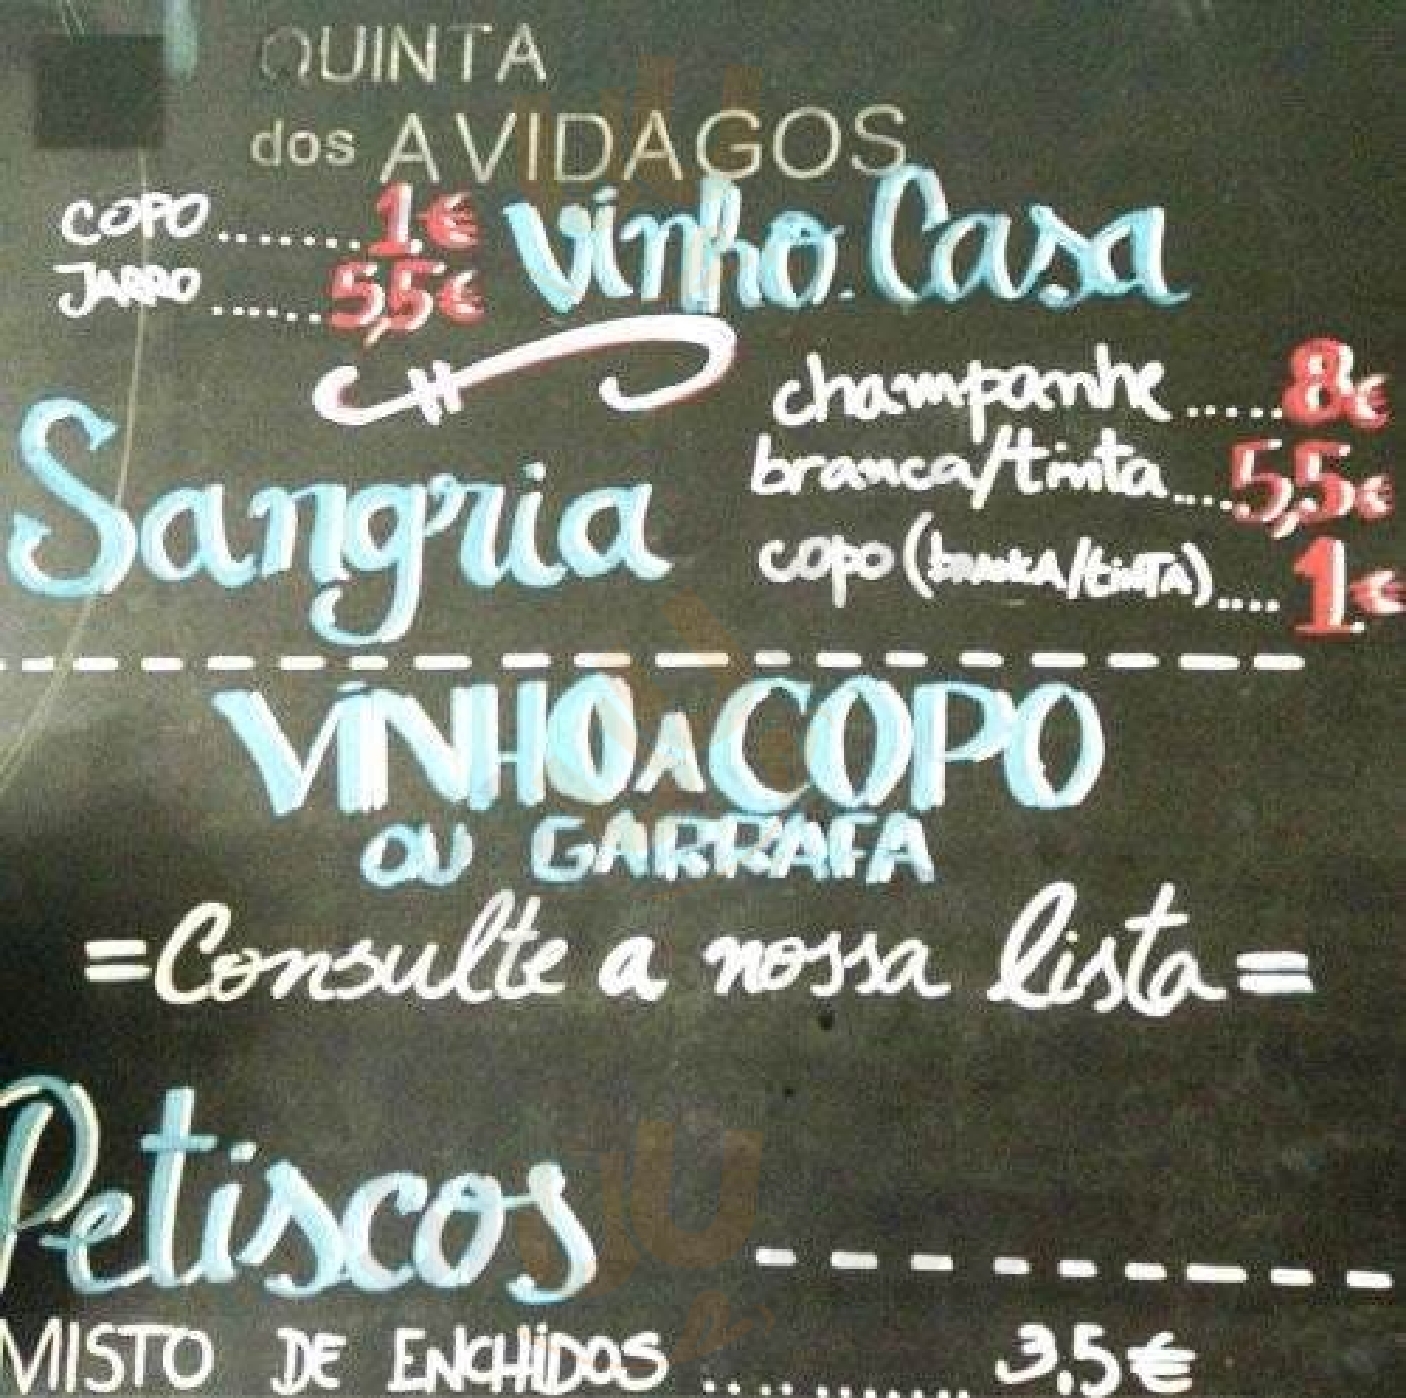 QUINTA
dos AVIDAGOS
COPO ........ 1€
JARRO ....... 5,5€
Vinho Casa
Sangria
champanhe ..... 8€
branca/tinta .... 5,5€
copo (branca/tinta) .... 1€
VINHO A COPO
OU GARRAFA
=Consulte a nossa lista=
Petiscos
MISTO DE ENCHIDOS ........... 3,5€